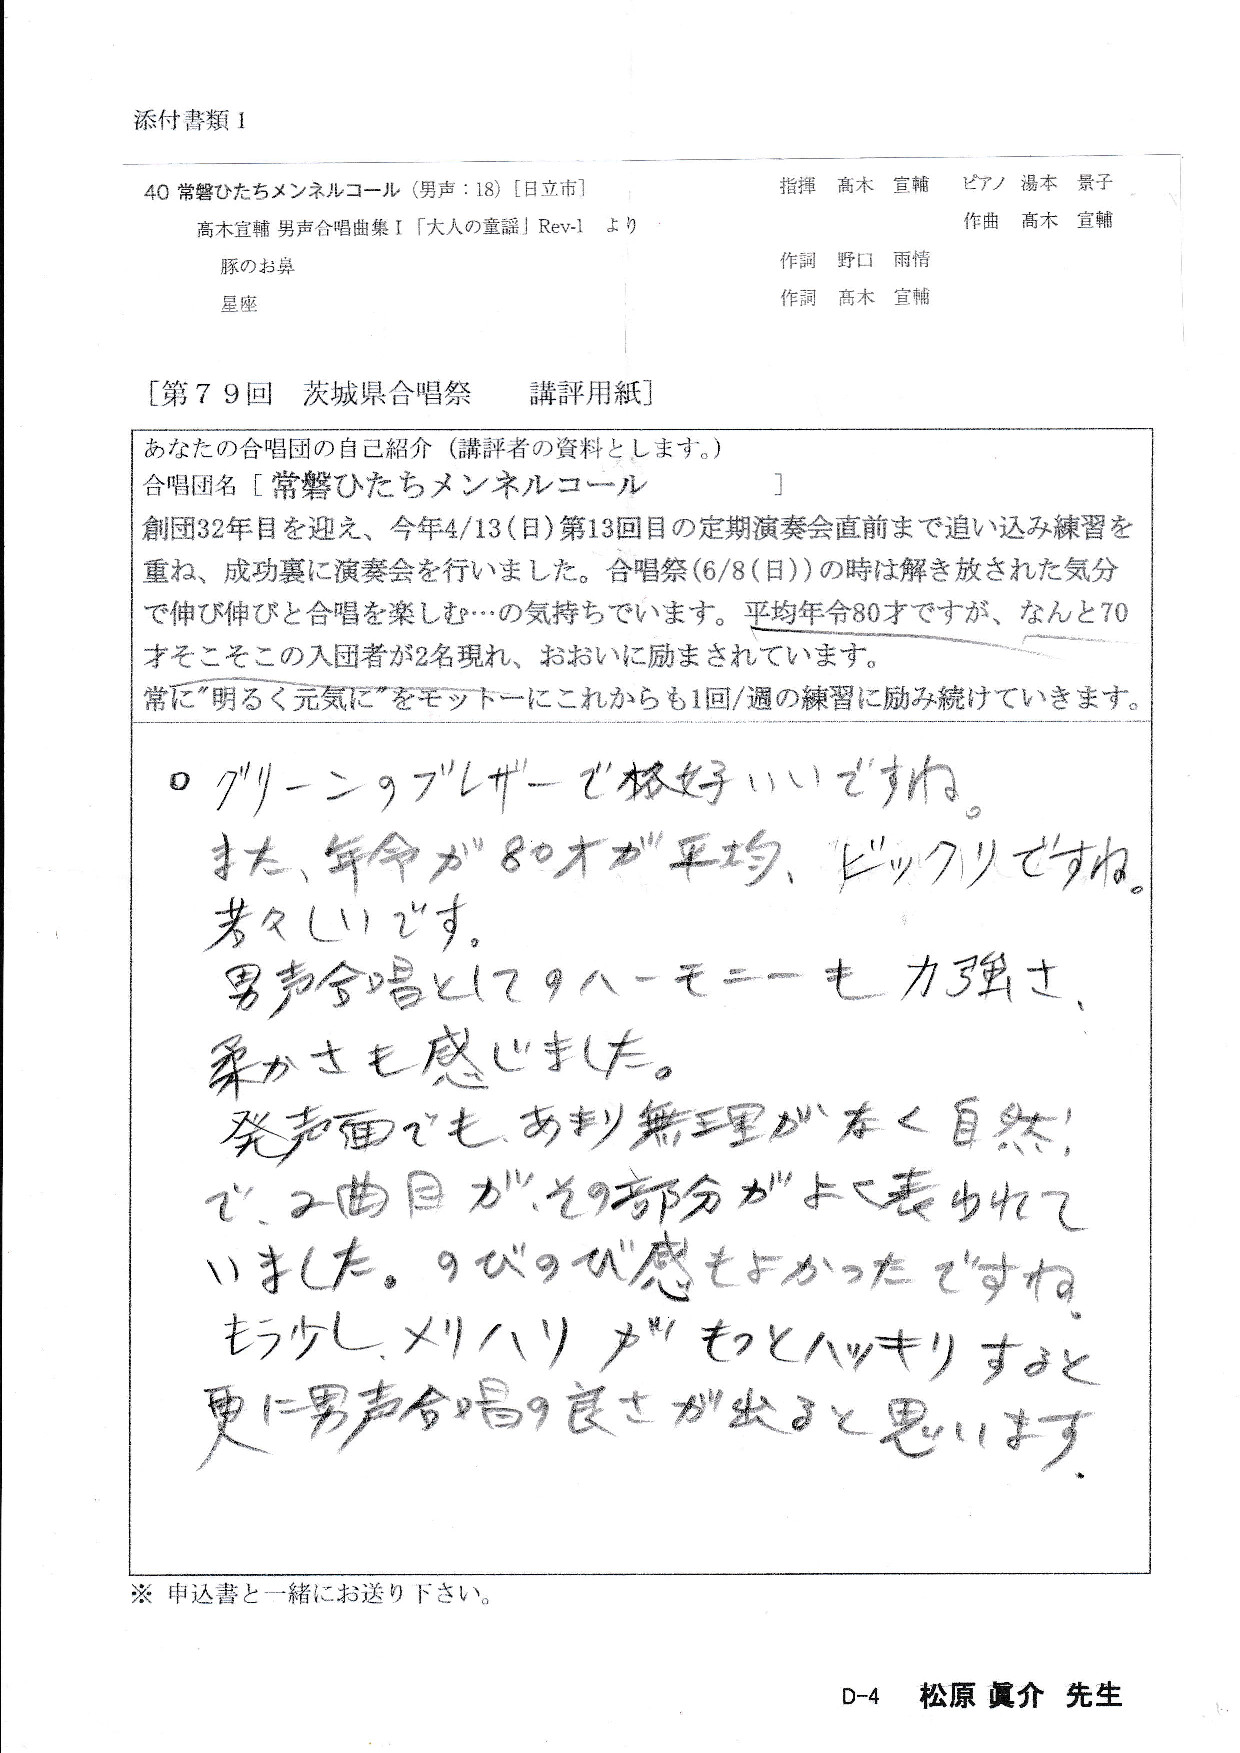 添付書類1
40 常磐ひたちメンネルコール（男声：18）［日立市］ 指揮 髙木 宣輔 ピアノ 湯本 景子
髙木宣輔 男声合唱曲集Ⅰ「大人の童謡」Rev-1 より 作曲 髙木 宣輔
豚のお鼻 作詞 野口 雨情
星座 作詞 髙木 宣輔
［第79回 茨城県合唱祭 講評用紙］
あなたの合唱団の自己紹介（講評者の資料とします。）
合唱団名［常磐ひたちメンネルコール ］
創団32年目を迎え、今年4/13(日)第13回目の定期演奏会直前まで追い込み練習を
重ね、成功裏に演奏会を行いました。合唱祭(6/8(日))の時は解き放された気分
で伸び伸びと合唱を楽しむ…の気持ちでいます。平均年令80才ですが、なんと70
才そこそこの入団者が2名現れ、おおいに励まされています。
常に"明るく元気に"をモットーにこれからも1回/週の練習に励み続けていきます。
○ グリーンのブレザーで格好いいですね。
また、年令が80才が平均、ビックリですね。
若々しいです。
男声合唱としてのハーモニーも力強さ、
柔かさも感じました。
発声面でも、あまり無理がなく自然!
で、2曲目が、その部分がよく表われて
いました。のびのび感もよかったですね。
もう少し、メリハリがもっとハッキリすると
更に男声合唱の良さが出ると思います.
※ 申込書と一緒にお送り下さい。
D-4 松原 眞介 先生